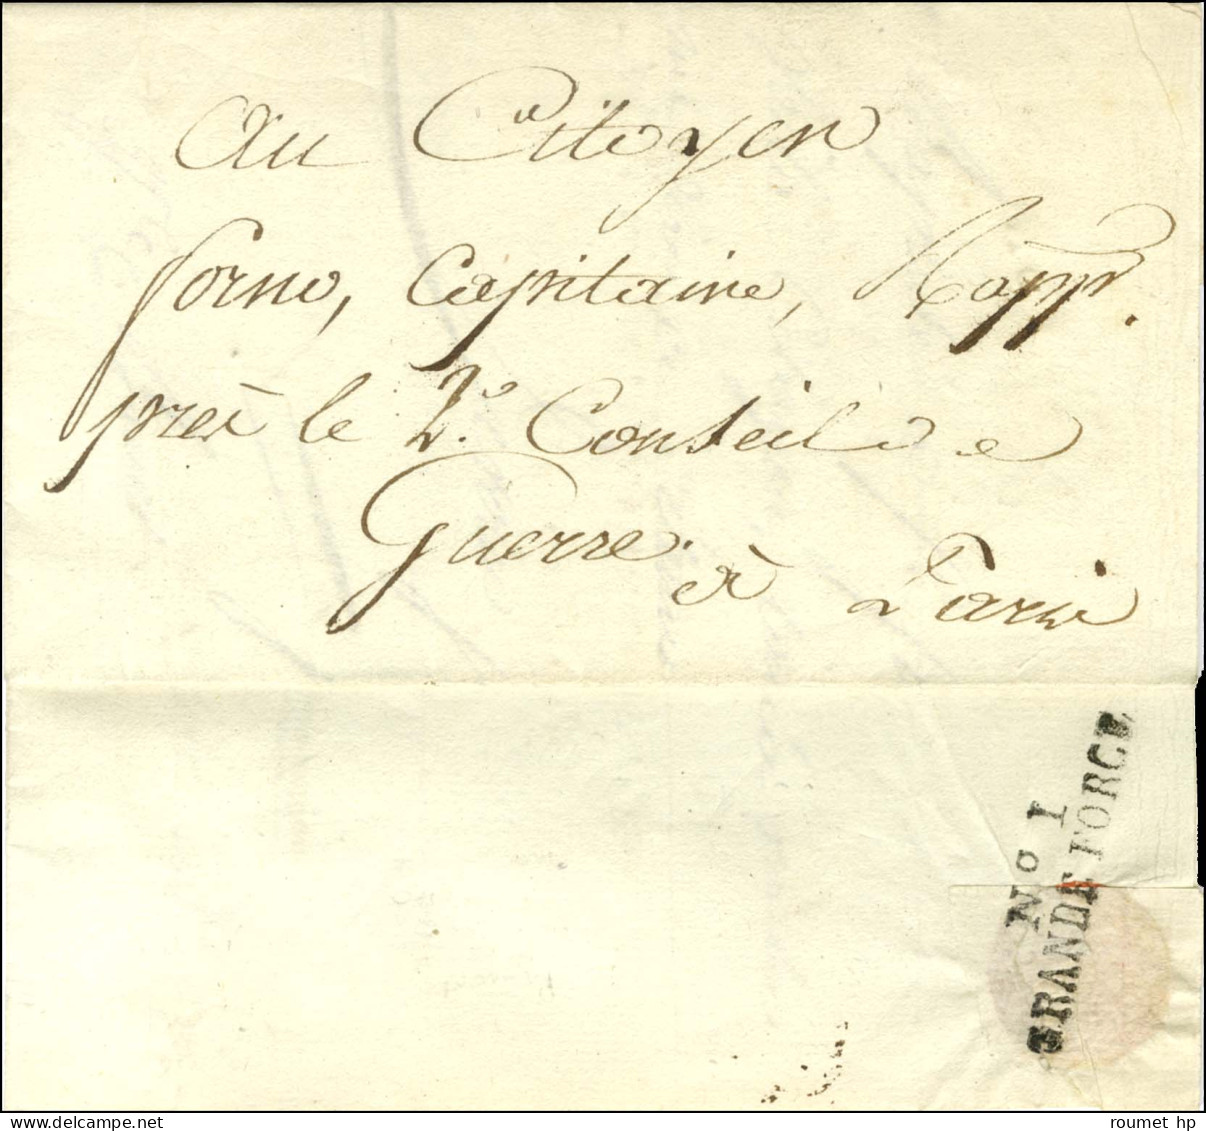 Au Citoyen
forno, Capitaine, Rappr.
près le 2e. Conseil de
Guerre. à Paris
No I
GRANDE FORCE
roumet hp